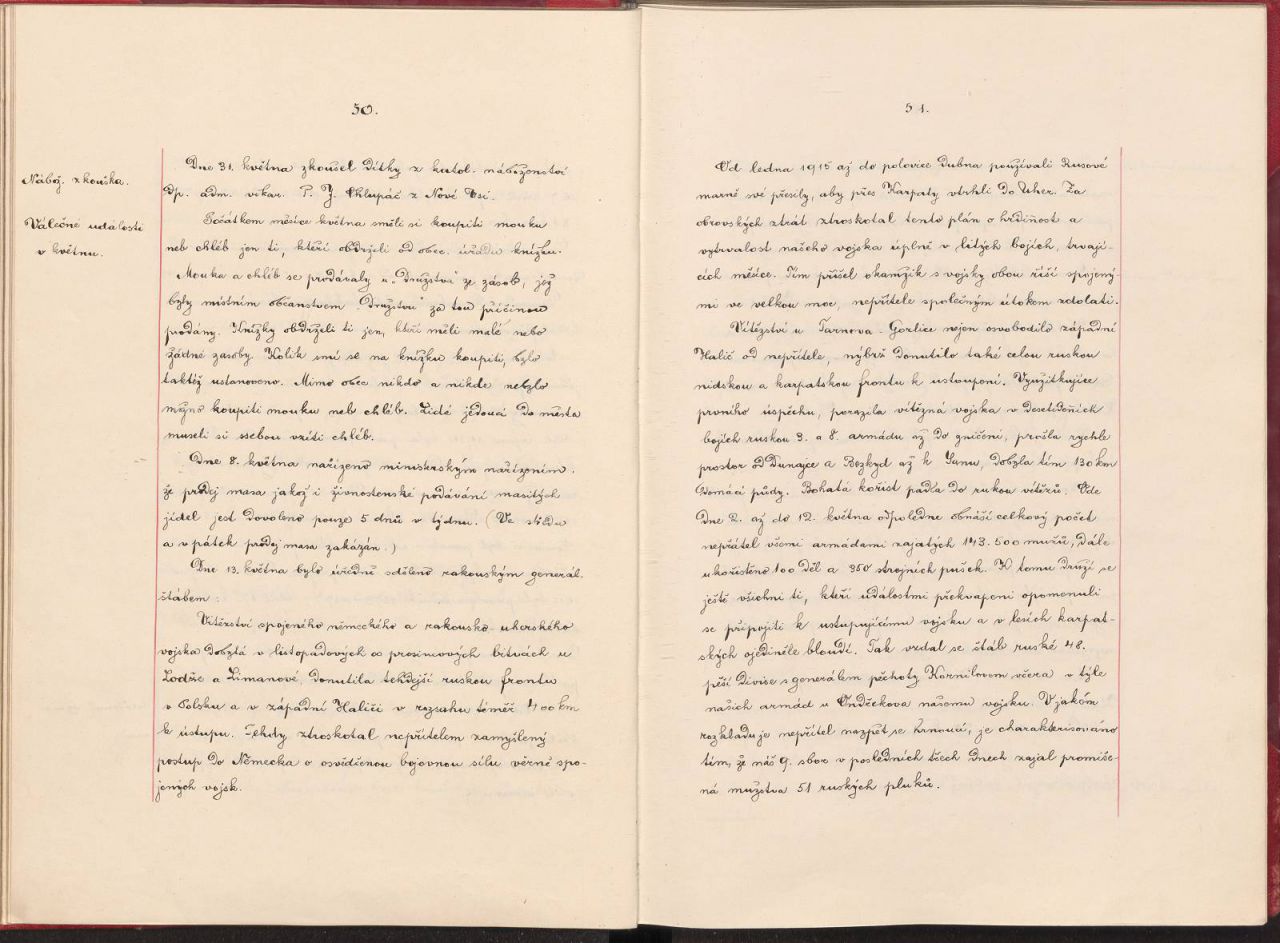 50.
Nábož. zkouška.
Válečné události
v květnu.
Dne 31. května zkoušel dítky z katol. náboženství
dp. adm. vikar. P. J. Chlupáč z Nové Vsi.
Počátkem měsíce května směli si koupiti mouku
neb chléb jen ti, kteří obdrželi od obec. úřadu knížku.
Mouka a chléb se prodávaly u „Družstva" ze zásob, jež
byly místním občanstvem „Družstvu" za tou příčinou
podány. Knížky obdrželi ti jen, kteří měli malé nebo
žádné zásoby. Kolik smí se na knížku koupiti, bylo
taktéž ustanoveno. Mimo obec nikdo a nikde nebylo
možno koupiti mouku neb chléb. Lidé jedoucí do města
museli si ssebou vzíti chléb.
Dne 8. května nařízeno ministerským nařízením.
že prodej masa jakož i živnostenské podávání masitých
jídel jest dovoleno pouze 5 dnů v týdnu. (Ve středu
a v pátek prodej masa zakázán.)
Dne 13. května bylo úředně sděleno rakouským generál.
štábem:
Vítězství spojeného německého a rakousko-uherského
vojska dobytá v listopadových a prosincových bitvách u
Lodže a Limanové, donutila tehdejší ruskou frontu
v Polsku a v západní Haliči v rozsahu téměř 400 km
k ústupu. Tehdy ztroskotal nepřítelem zamýšlený
postup do Německa o osvědčenou bojovnou sílu věrně spo-
jených vojsk.
51.
Od ledna 1915 až do polovice dubna používali Rusové
marně své přesily, aby přes Karpaty vtrhli do Uher. Za
obrovských ztrát ztroskotal tento plán o hrdinost a
vytrvalost našeho vojska úplně v lítých bojích, trvají-
cích měsíce. Tím přišel okamžik s vojsky obou říší spojený-
mi ve velkou moc, nepřítele společným útokem zdolati.
Vítězství u Tarnova-Gorlice nejen osvobodilo západní
Halič od nepřítele, nýbrž donutilo také celou ruskou
nidskou a karpatskou frontu k ustoupení. Využitkujíce
prvního úspěchu, porazila vítězná vojska v desetidenních
bojích ruskou 3. a 8. armádu až do zničení, prošla rychle
prostor od Dunajce a Bezkyd až k Sanu, dobyla tím 130 km
domácí půdy. Bohatá kořist padla do rukou vítězů. Ode
dne 2. až do 12. května odpoledne obnáší celkový počet
nepřátel všemi armádami zajatých 143.500 mužů, dále
ukořistěno 100 děl a 350 strojních pušek. K tomu druží se
ještě všichni ti, kteří událostmi překvapeni opomenuli
se připojiti k ustupujícímu vojsku a v lesích karpat-
ských ojediněle bloudí. Tak vzdal se štáb ruské 48.
pěší divise s generálem pěchoty Kornilovem včera v týle
našich armád u Ondřekova našemu vojsku. V jakém
rozkladu je nepřítel nazpět se hrnoucí, je charakterisováno
tím, že náš 9. sbor v posledních třech dnech zajal promíše-
ná mužstva 51 ruských pluků.